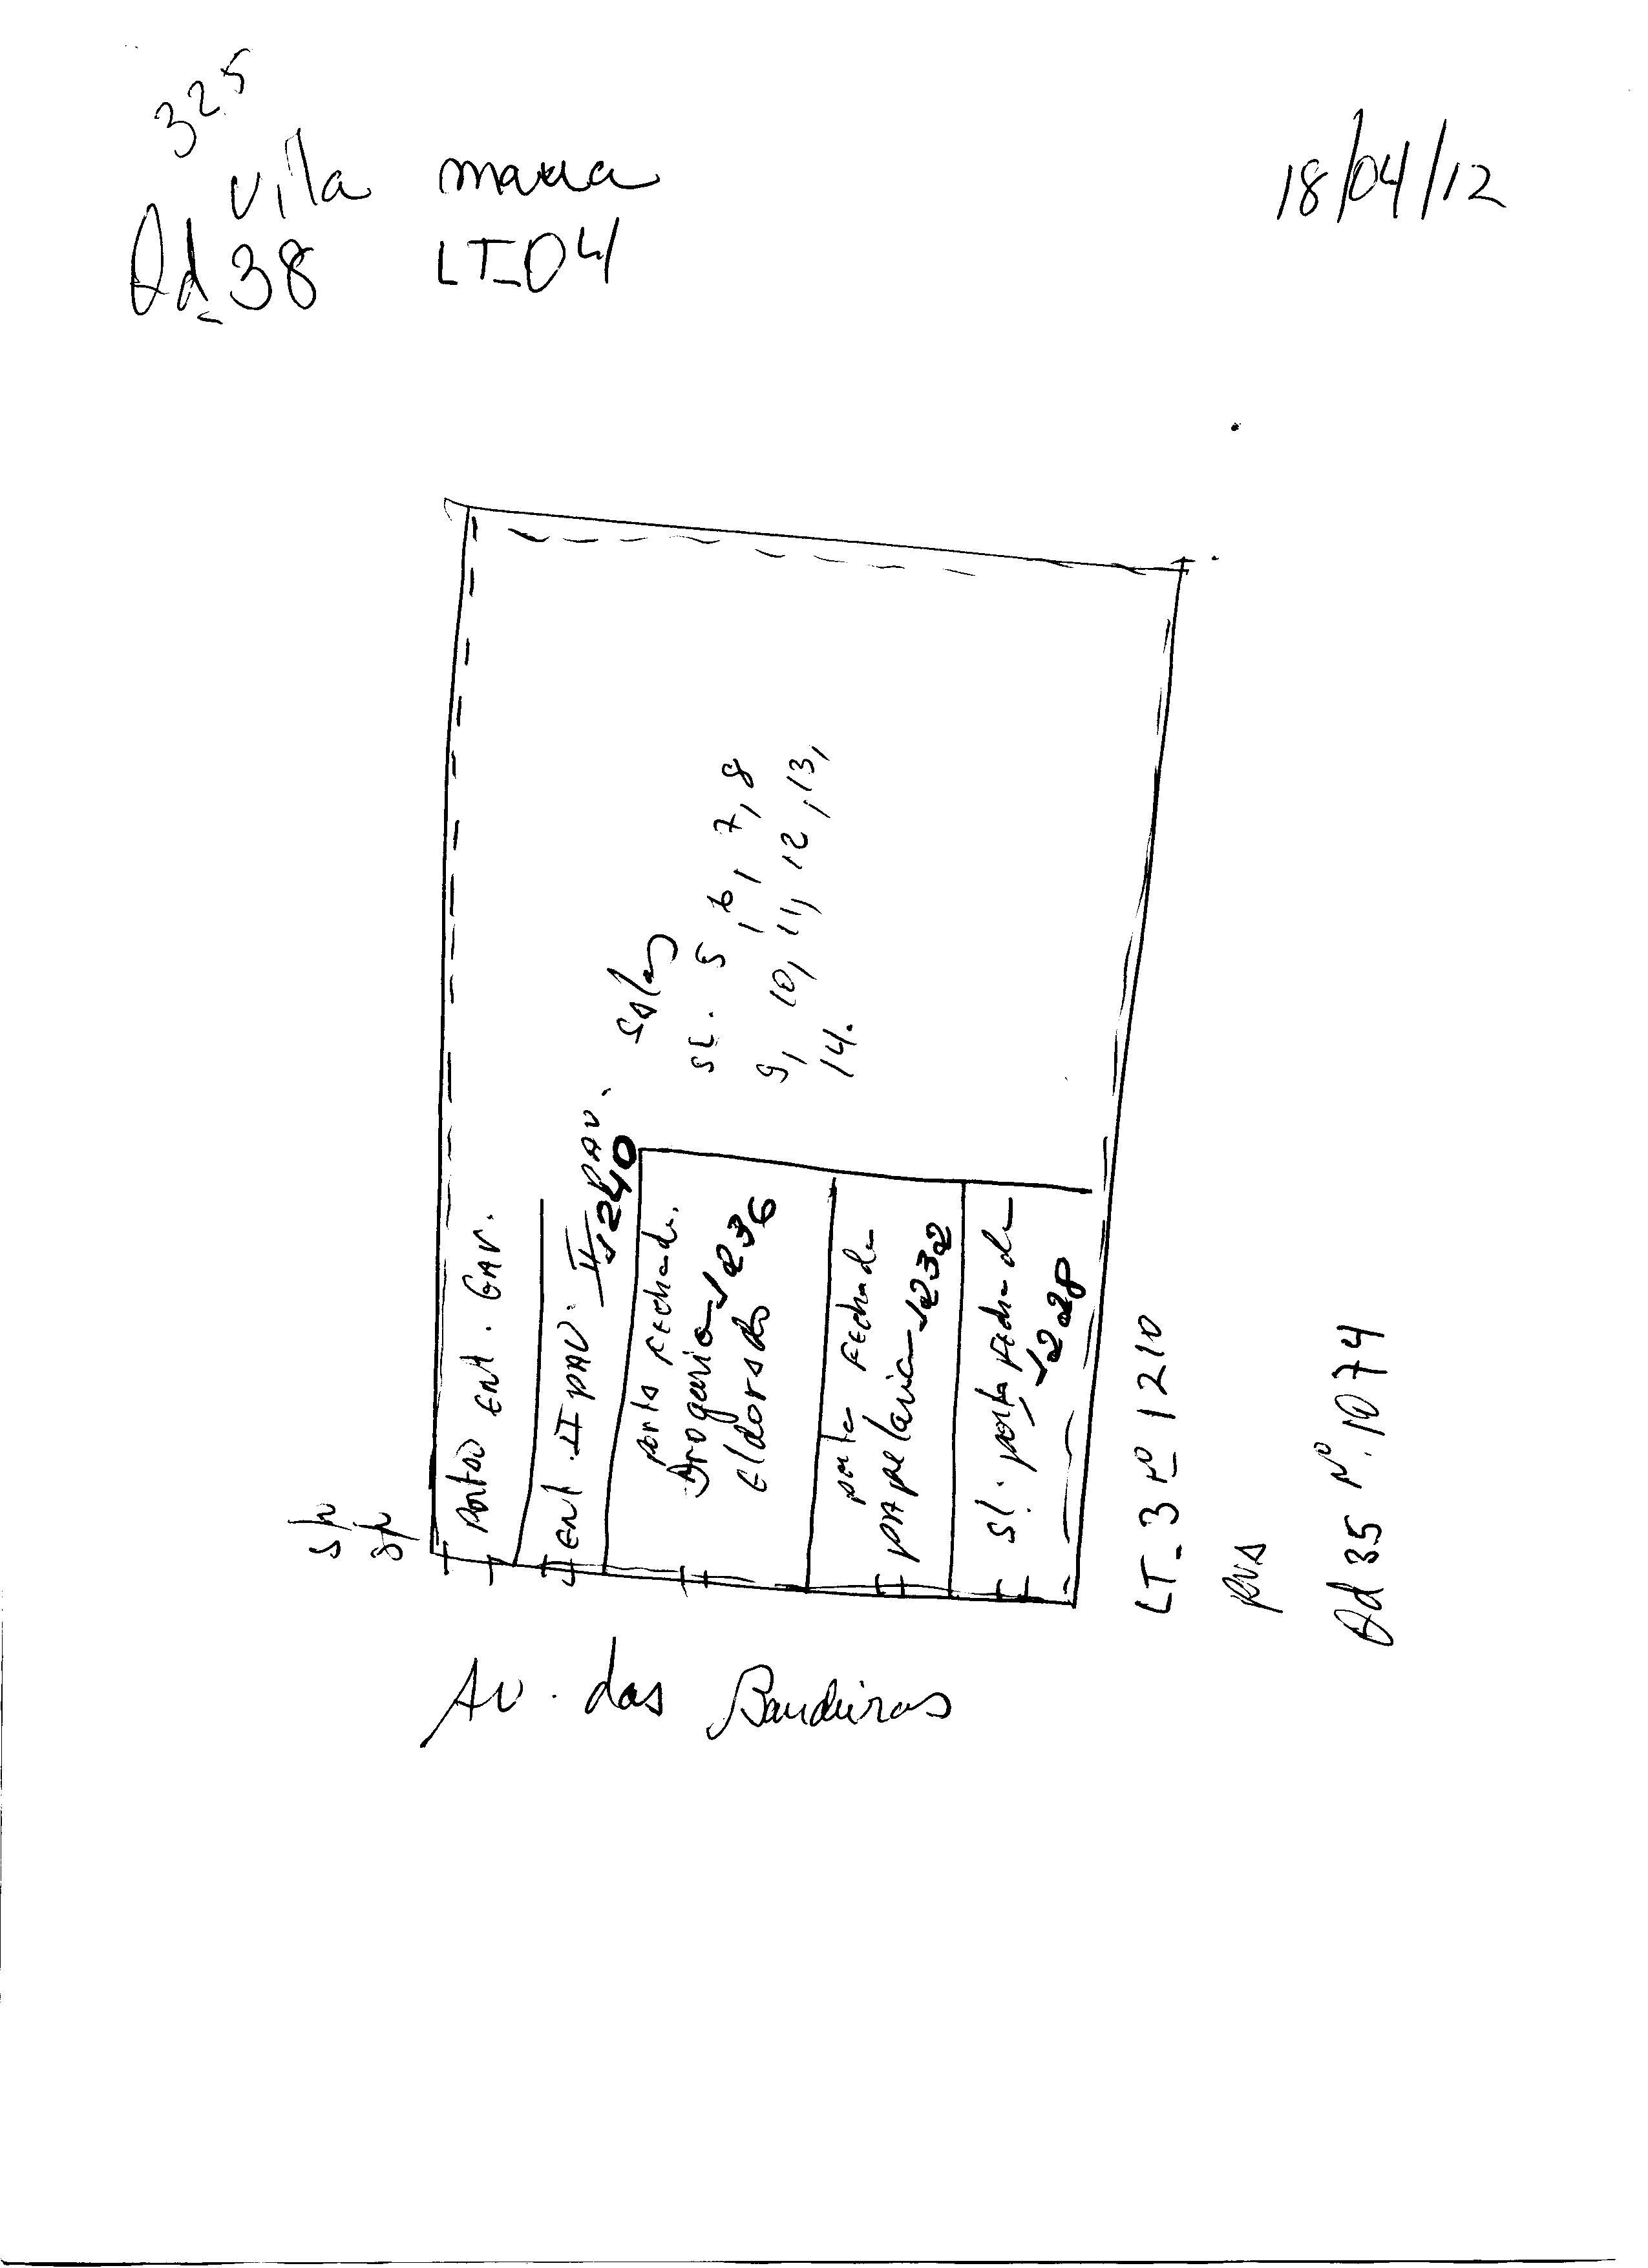 325
Vila maria
18/04/12
Qd 38 LT-04
Portão Ent. GAV.
Ent. II PAV.
II PAV. Salas
1240
SL. 5, 6, 7, 8
9, 10, 11, 12, 13,
14.
porta Fechada.
Drogaria 1236
Eldorado
porta Fechada
papelaria 1232
Sl. porta Fechada
1228
LT-3 Nº 1210
RUA
Qd 35 Nº 1074
Av. das Bandeiras